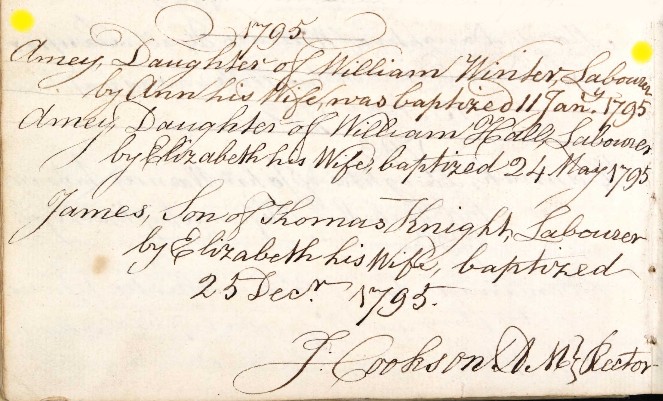 1795
Amey, Daughter of William Winter, Labourer
by Ann his Wife, was baptized 11 Jany. 1795
Amey Daughter of William Hall, Labourer
by Elizabeth his Wife, baptized 24 May 1795
James, Son of Thomas Knight, Labourer
by Elizabeth his Wife, baptized
25 Decr. 1795.
J. Cookson A.M. Rector